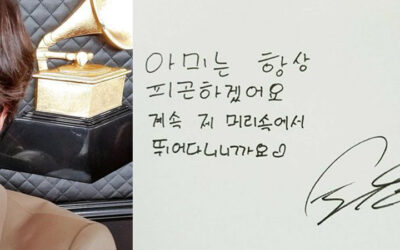 아미는 항상
피곤하겠어요
계속 제 머리속에서
뛰어다니니까요